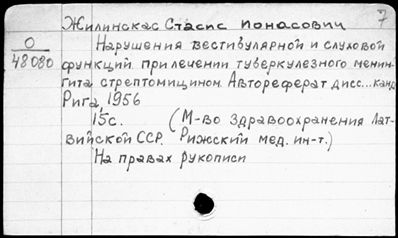 7
Жилинскас Стасис Ионасович
О
48080
Нарушения вестибулярной и слуховой
функций при лечении туберкулезного менин-
гита стрептомицином. Автореферат дисс... канд
Рига, 1956
15с. (М-во здравоохранения Лат-
вийской ССР. Рижский мед. ин-т.)
На правах рукописи